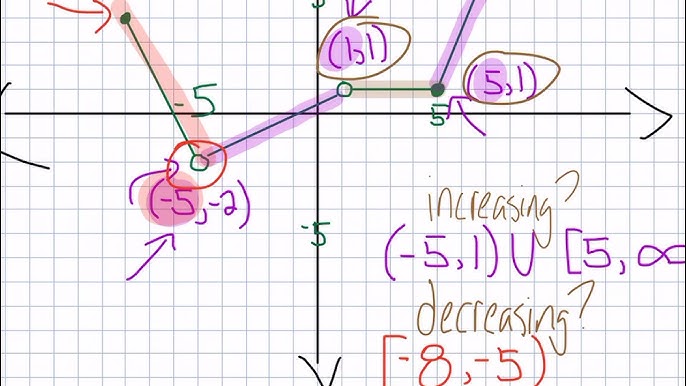 5
(1,1)
(5,1)
-5
5
(-5,-2)
-5
increasing?
(-5,1) U [5,∞
decreasing?
[-8,-5)